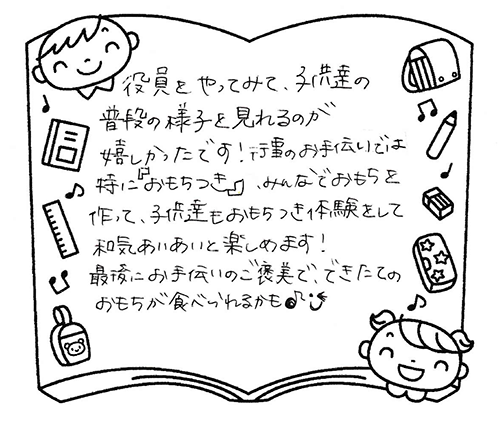 役員をやってみて、子供達の
普段の様子を見れるのが
嬉しかったです!行事のお手伝いでは
特に『おもちつき』、みんなでおもちを
作って、子供達もおもちつき体験をして
和気あいあいと楽しめます!
最後にお手伝いのご褒美で、できたての
おもちが食べられるかも♪